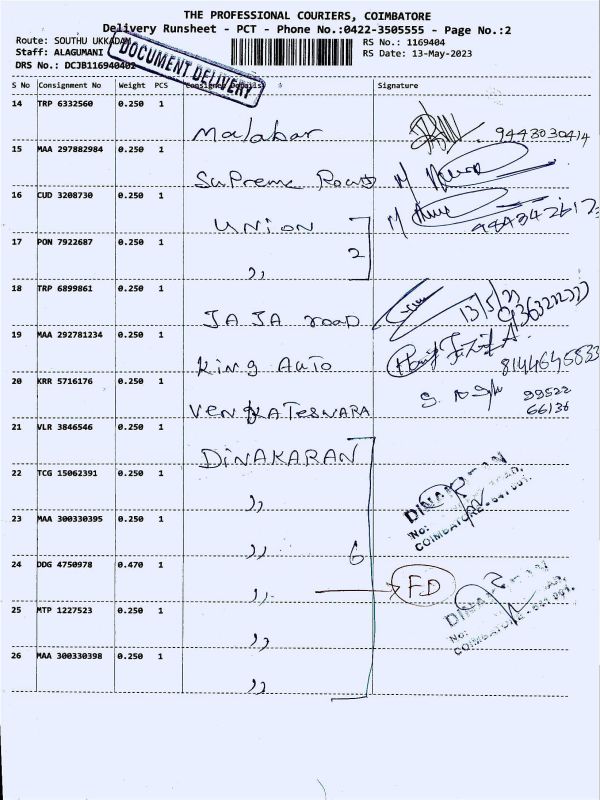 THE PROFESSIONAL COURIERS, COIMBATORE
Delivery Runsheet - PCT - Phone No.:0422-3505555 - Page No.:2
Route: SOUTHU UKKADAM RS No.: 1169404
Staff: ALAGUMANI RS Date: 13-May-2023
DRS No.: DCJB116940402
DOCUMENT DELIVERY
S No Consignment No Weight PCS Consignee Details Signature
14 TRP 6332560 0.250 1 Malabar 9443030414
15 MAA 297882984 0.250 1 Supreme Road
16 CUD 3208730 0.250 1 UNION
17 PON 7922687 0.250 1 ,, 2
18 TRP 6899861 0.250 1 JAJA road 13/5/23
19 MAA 292781234 0.250 1 King Auto
20 KRR 5716176 0.250 1 VENGKATESWARA 99522
66136
21 VLR 3846546 0.250 1 DINAKARAN
22 TCG 15062391 0.250 1 ,, DINAKARAN
No:
COIMBATORE - 641 001.
23 MAA 300330395 0.250 1 ,, 6
24 DDG 4750978 0.470 1 ,, FD
25 MTP 1227523 0.250 1 ,, DINAKARAN
No:
COIMBATORE - 641 001.
26 MAA 300330398 0.250 1 ,,